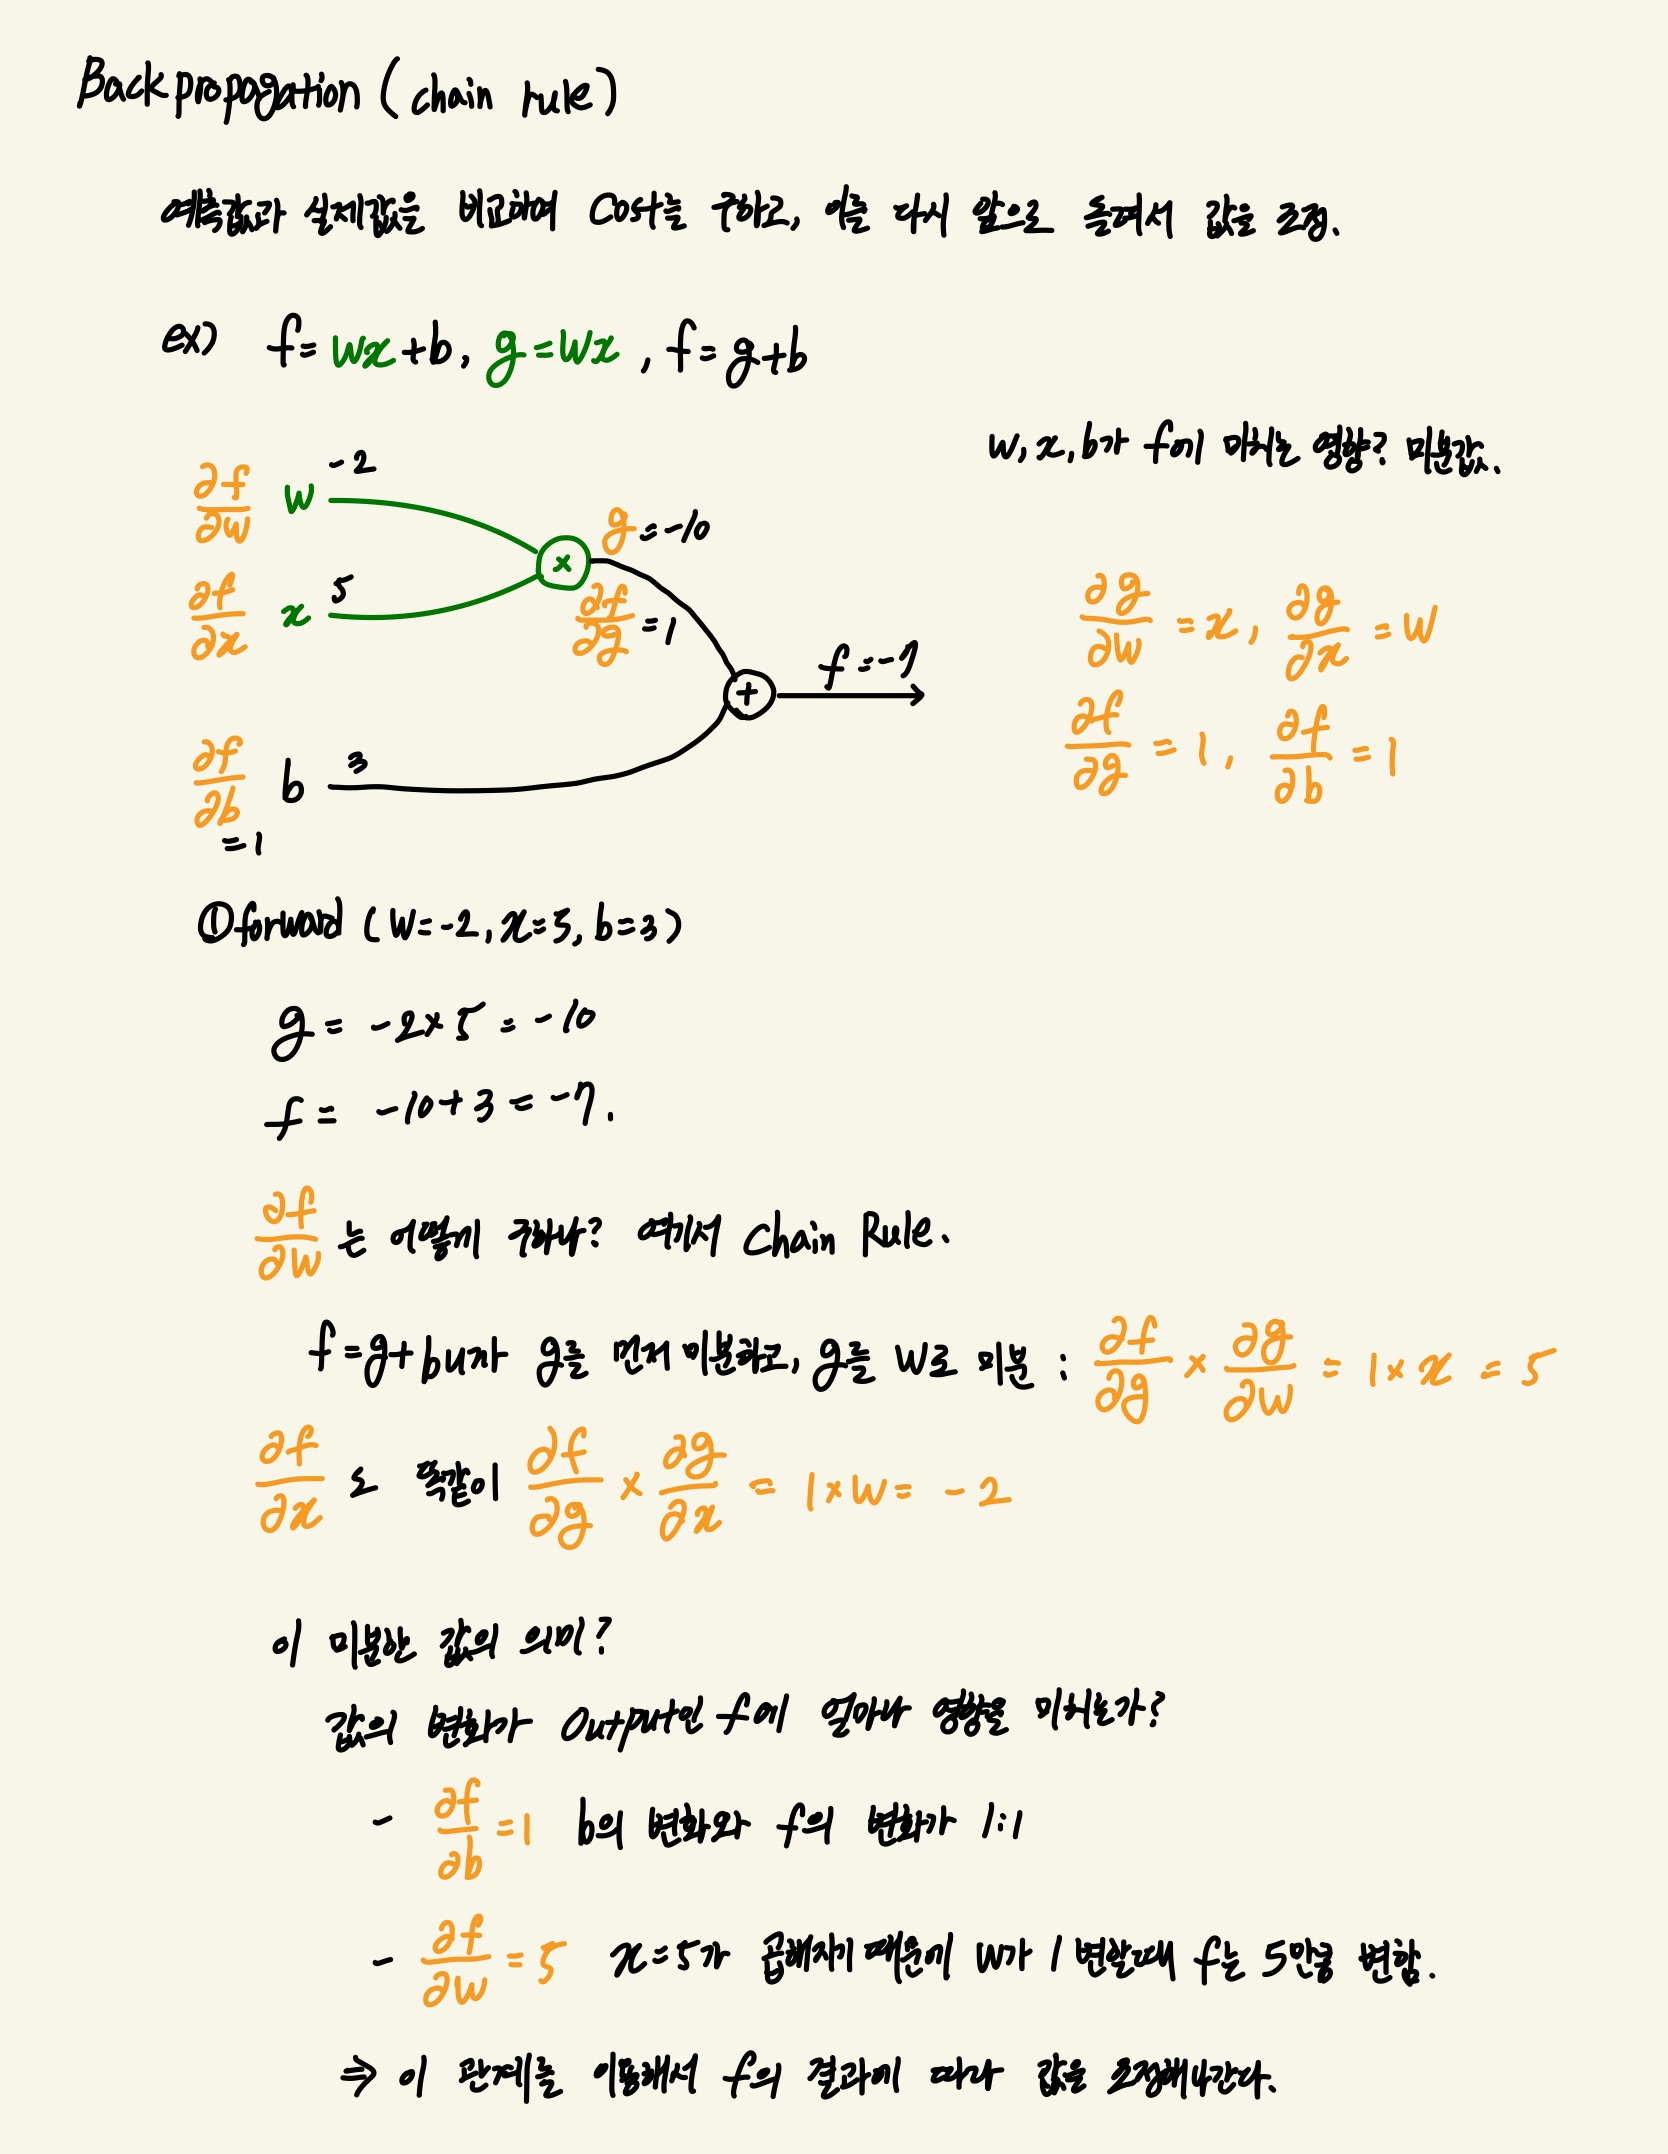 Backpropagation (chain rule)
예측값과 실제값을 비교하여 Cost를 구하고, 이를 다시 앞으로 돌려서 값을 조정.
ex) f=wx+b, g=wx, f=g+b
w, x, b가 f에 미치는 영향? 미분값.
∂f/∂w w -2
g=-10
∂f/∂x x 5
×
∂f/∂g=1
∂g/∂w=x, ∂g/∂x=w
+
f=-7
∂f/∂g=1, ∂f/∂b=1
∂f/∂b=1 b 3
① forward (w=-2, x=5, b=3)
g = -2×5 = -10
f = -10+3 = -7.
∂f/∂w는 어떻게 구하나? 여기서 Chain Rule.
f=g+b니까 g를 먼저 미분하고, g를 w로 미분 : ∂f/∂g × ∂g/∂w = 1×x = 5
∂f/∂x도 똑같이 ∂f/∂g × ∂g/∂x = 1×w = -2
이 미분한 값의 의미?
값의 변화가 Output인 f에 얼마나 영향을 미치는가?
- ∂f/∂b=1 b의 변화와 f의 변화가 1:1
- ∂f/∂w=5 x=5가 곱해지기 때문에 w가 1 변할때 f는 5만큼 변함.
⇒ 이 관계를 이용해서 f의 결과에 따라 값을 조정해나간다.